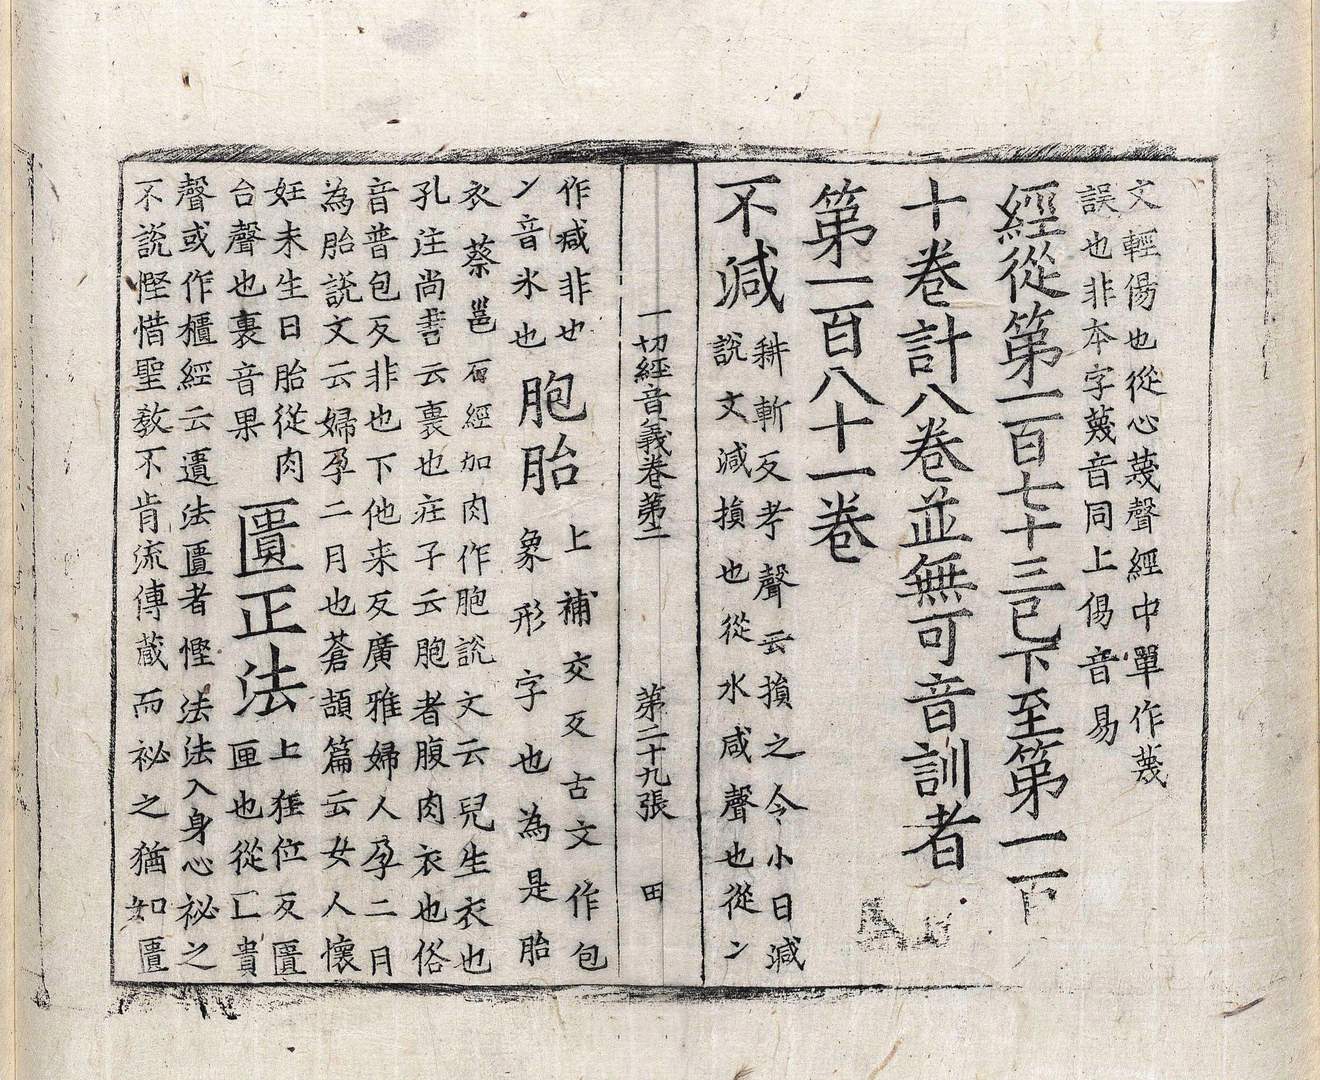 文輕傷也從心蔑聲經中單作蔑
誤也非本字蔑音同上傷音易
經從第一百七十三已下至第一百
十卷計八卷並無可音訓者
第一百八十一卷
不減
耕斬反考聲云損之令小曰減
說文減損也從水咸聲也從冫
一切經音義卷第二
第二十九張
田
作減非也
冫音氷也
胞胎
上補交反古文作包
象形字也為是胎
衣蔡邕石經加肉作胞說文云兒生衣也
孔注尚書云裹也莊子云胞者腹肉衣也俗
音普包反非也下他来反廣雅婦人孕二月
為胎說文云婦孕二月也蒼頡篇云女人懷
妊未生曰胎從肉
台聲也裹音果
匱正法
上逵位反匱
匣也從匚貴
聲或作櫃經云遺法匱者慳法法入身心祕之
不說慳惜聖教不肯流傳藏而祕之猶如匱